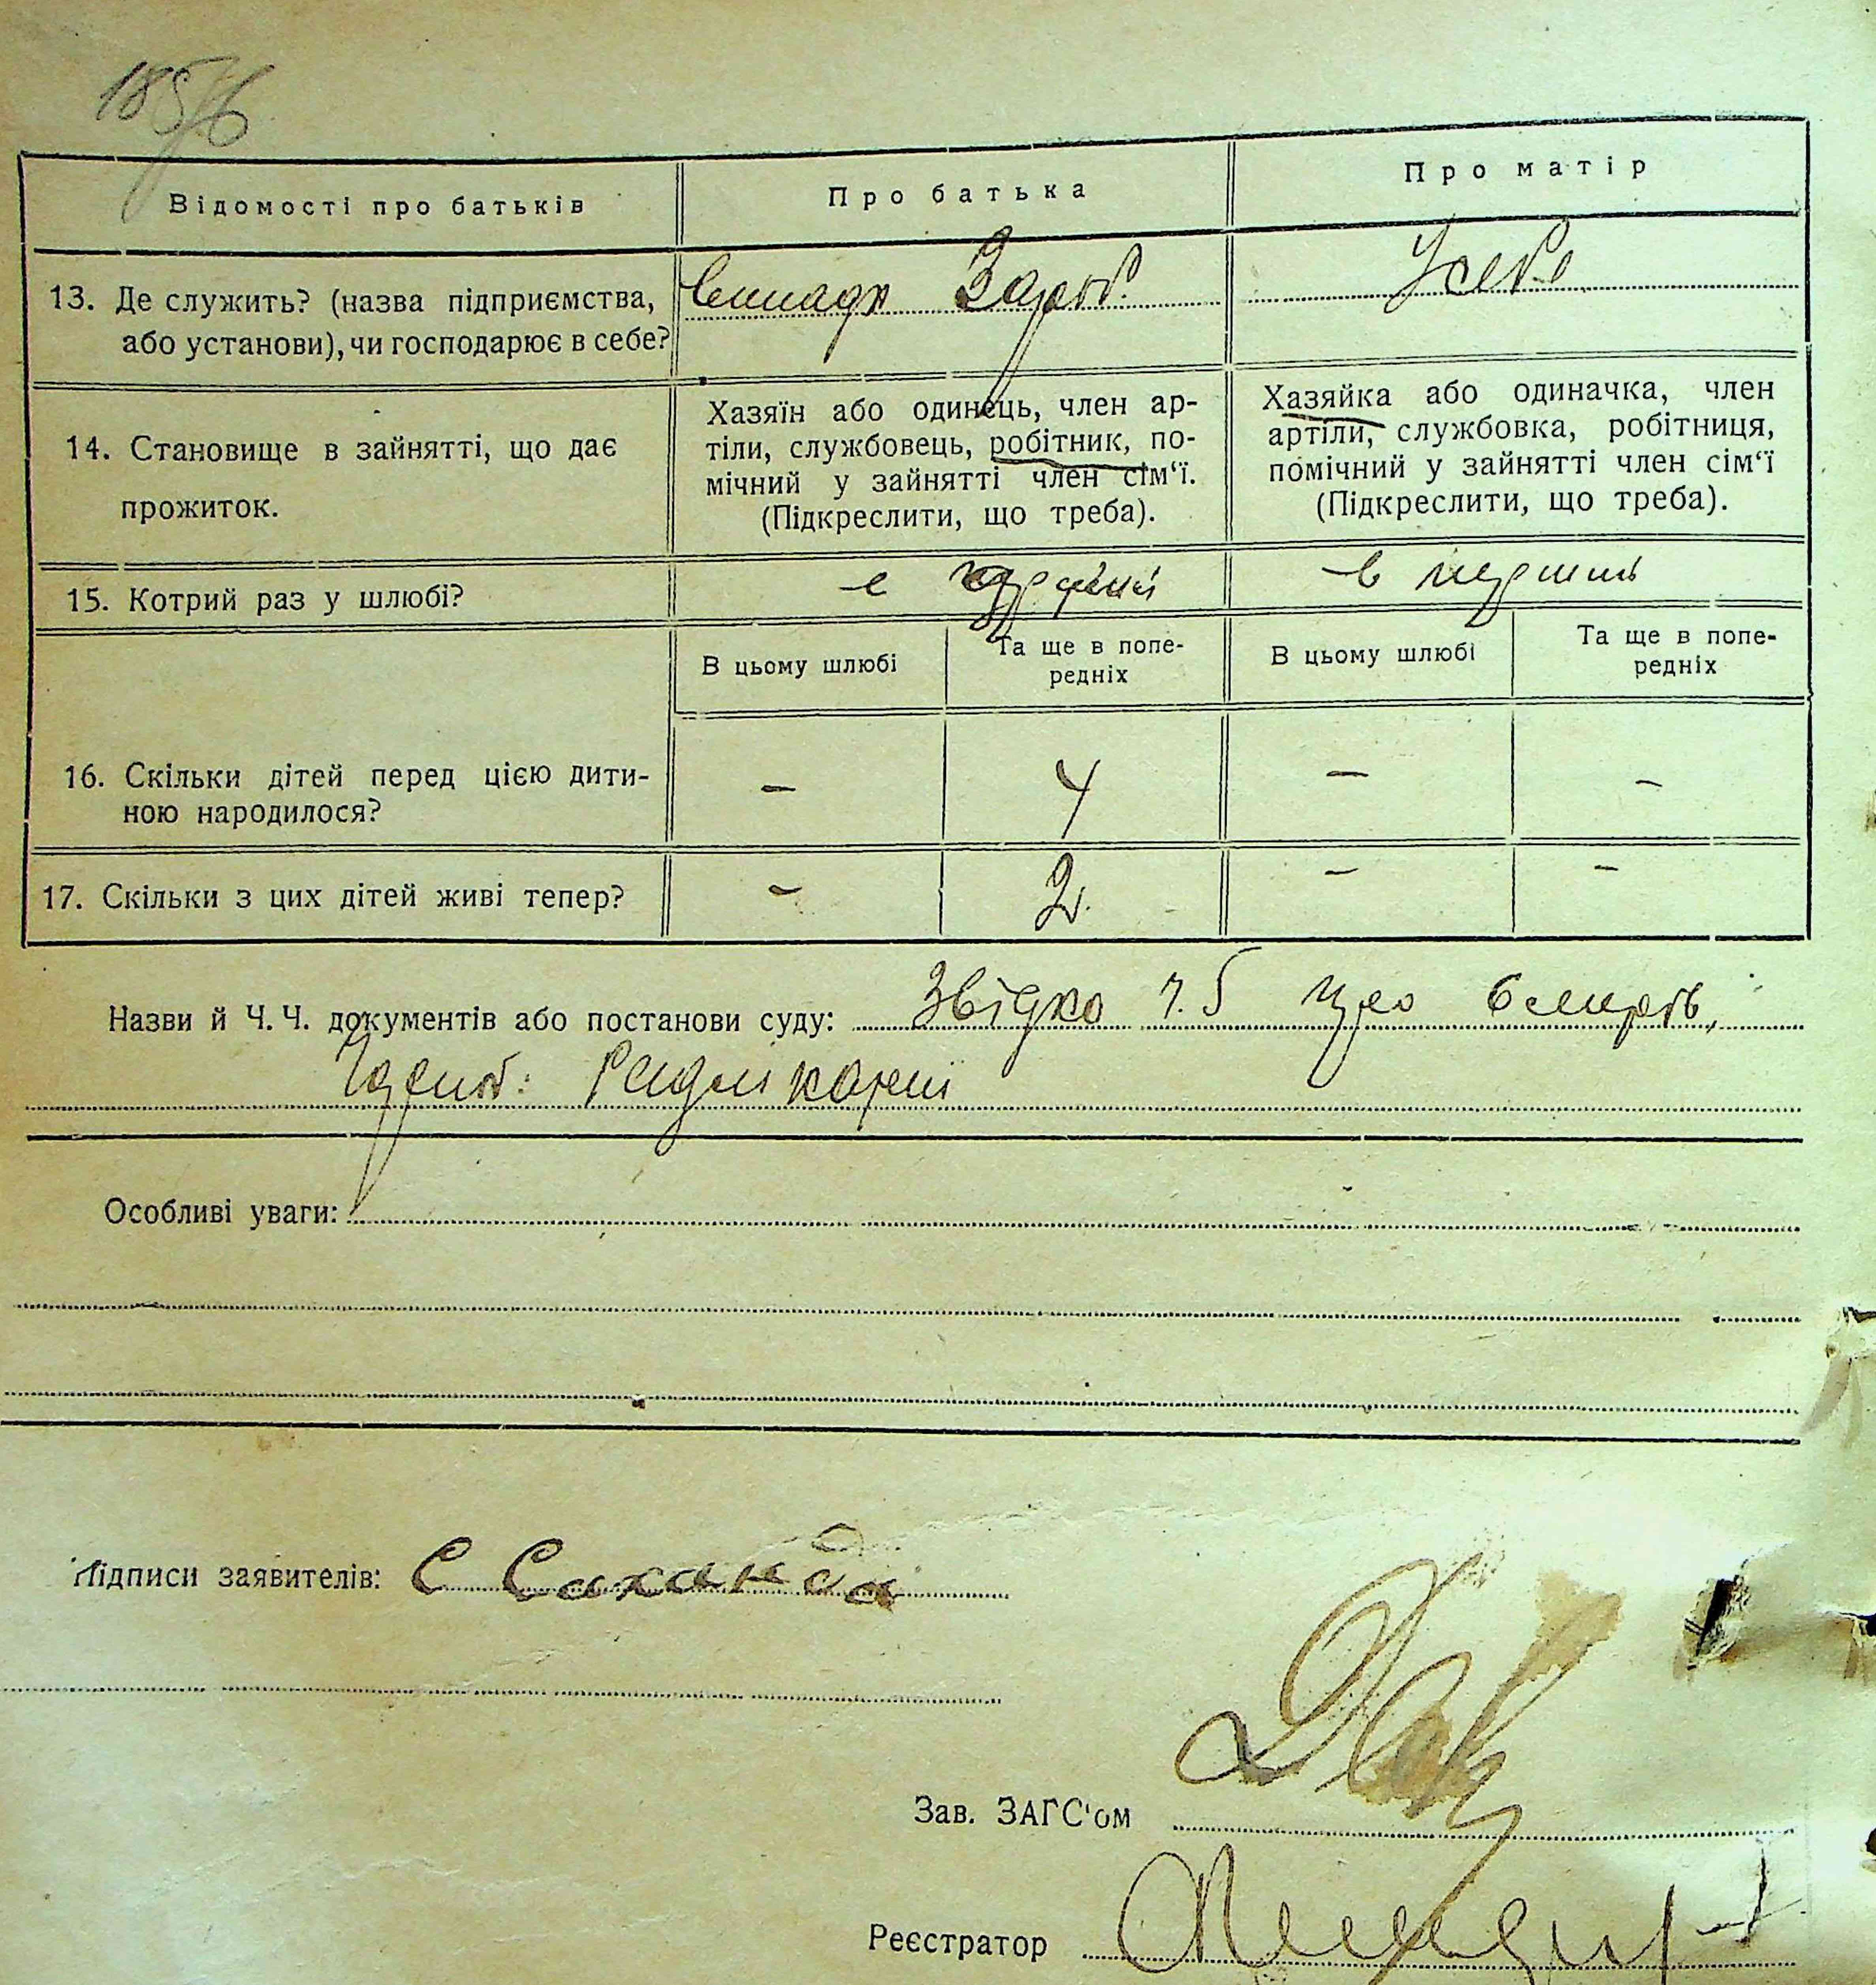 Відомості про батьків
Про батька
Про матір
13. Де служить? (назва підприємства,
або установи), чи господарює в себе?
У себе
14. Становище в зайнятті, що дає
прожиток.
Хазяїн або одинець, член ар-
тіли, службовець, робітник, по-
мічний у зайнятті член сім‘ї.
(Підкреслити, що треба).
Хазяйка або одиначка, член
артіли, службовка, робітниця,
помічний у зайнятті член сім‘ї
(Підкреслити, що треба).
15. Котрий раз у шлюбі?
В цьому шлюбі
Та ще в попе-
редніх
В цьому шлюбі
Та ще в попе-
редніх
16. Скільки дітей перед цією дити-
ною народилося?
- 4 - -
17. Скільки з цих дітей живі тепер?
- 2. - -
Назви й Ч. Ч. документів або постанови суду: Звідка ч. 5 про
Особливі уваги:
Підписи заявителів: С Саханда
Зав. ЗАГС'ом
Реєстратор